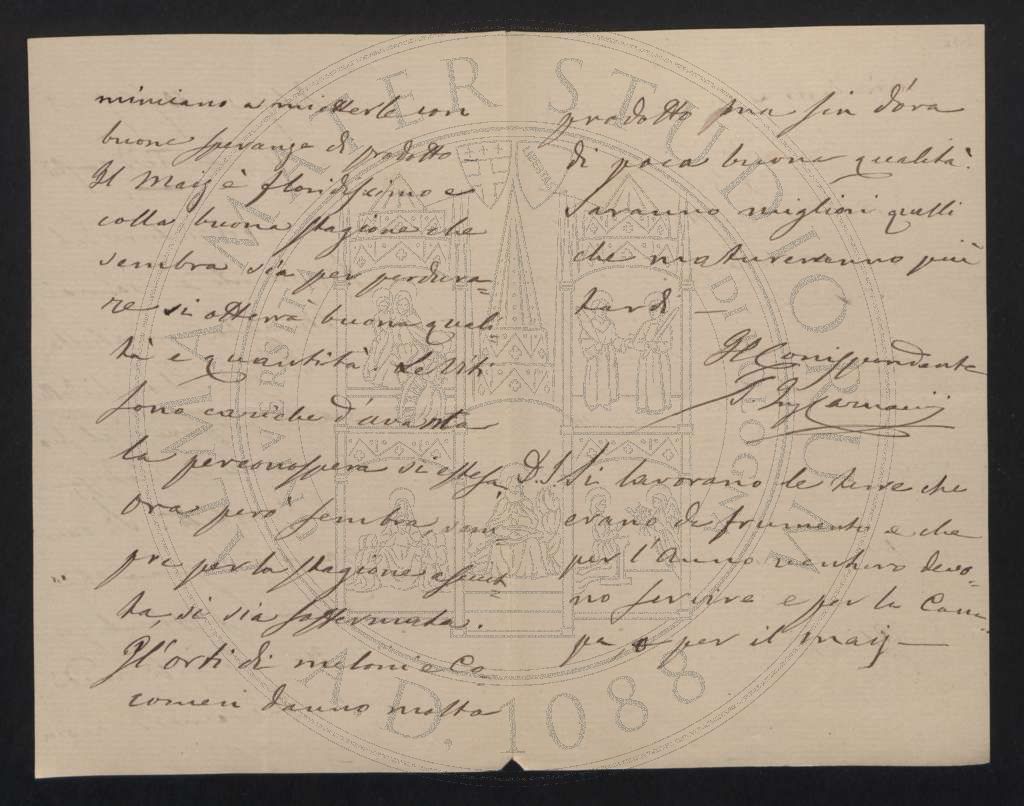 minciano a mietterle con
buone speranze di prodotto –
Il Maiz è floridissimo e
colla buona stagione che
sembra sia per perdura=
re si otterrà buona quali
tà e quantità. Le Viti
sono cariche d'uva
la peronospera si estesa,
ora però sembra, sem=
pre per la stagione asciut
ta, si sia soffermata.
Gl'orti di meloni e Co=
comeri danno molto
prodotto ma sin d'ora
di poca buona qualità.
Saranno migliori quelli
che matureranno più
tardi –
Il Corrispondente
Si lavorano le terre che
erano di frumento e che
per l'anno venturo devo=
no servire e per la Cana=
pa e per il maiz –
ALMA MATER STUDIORUM
A.D. 1088